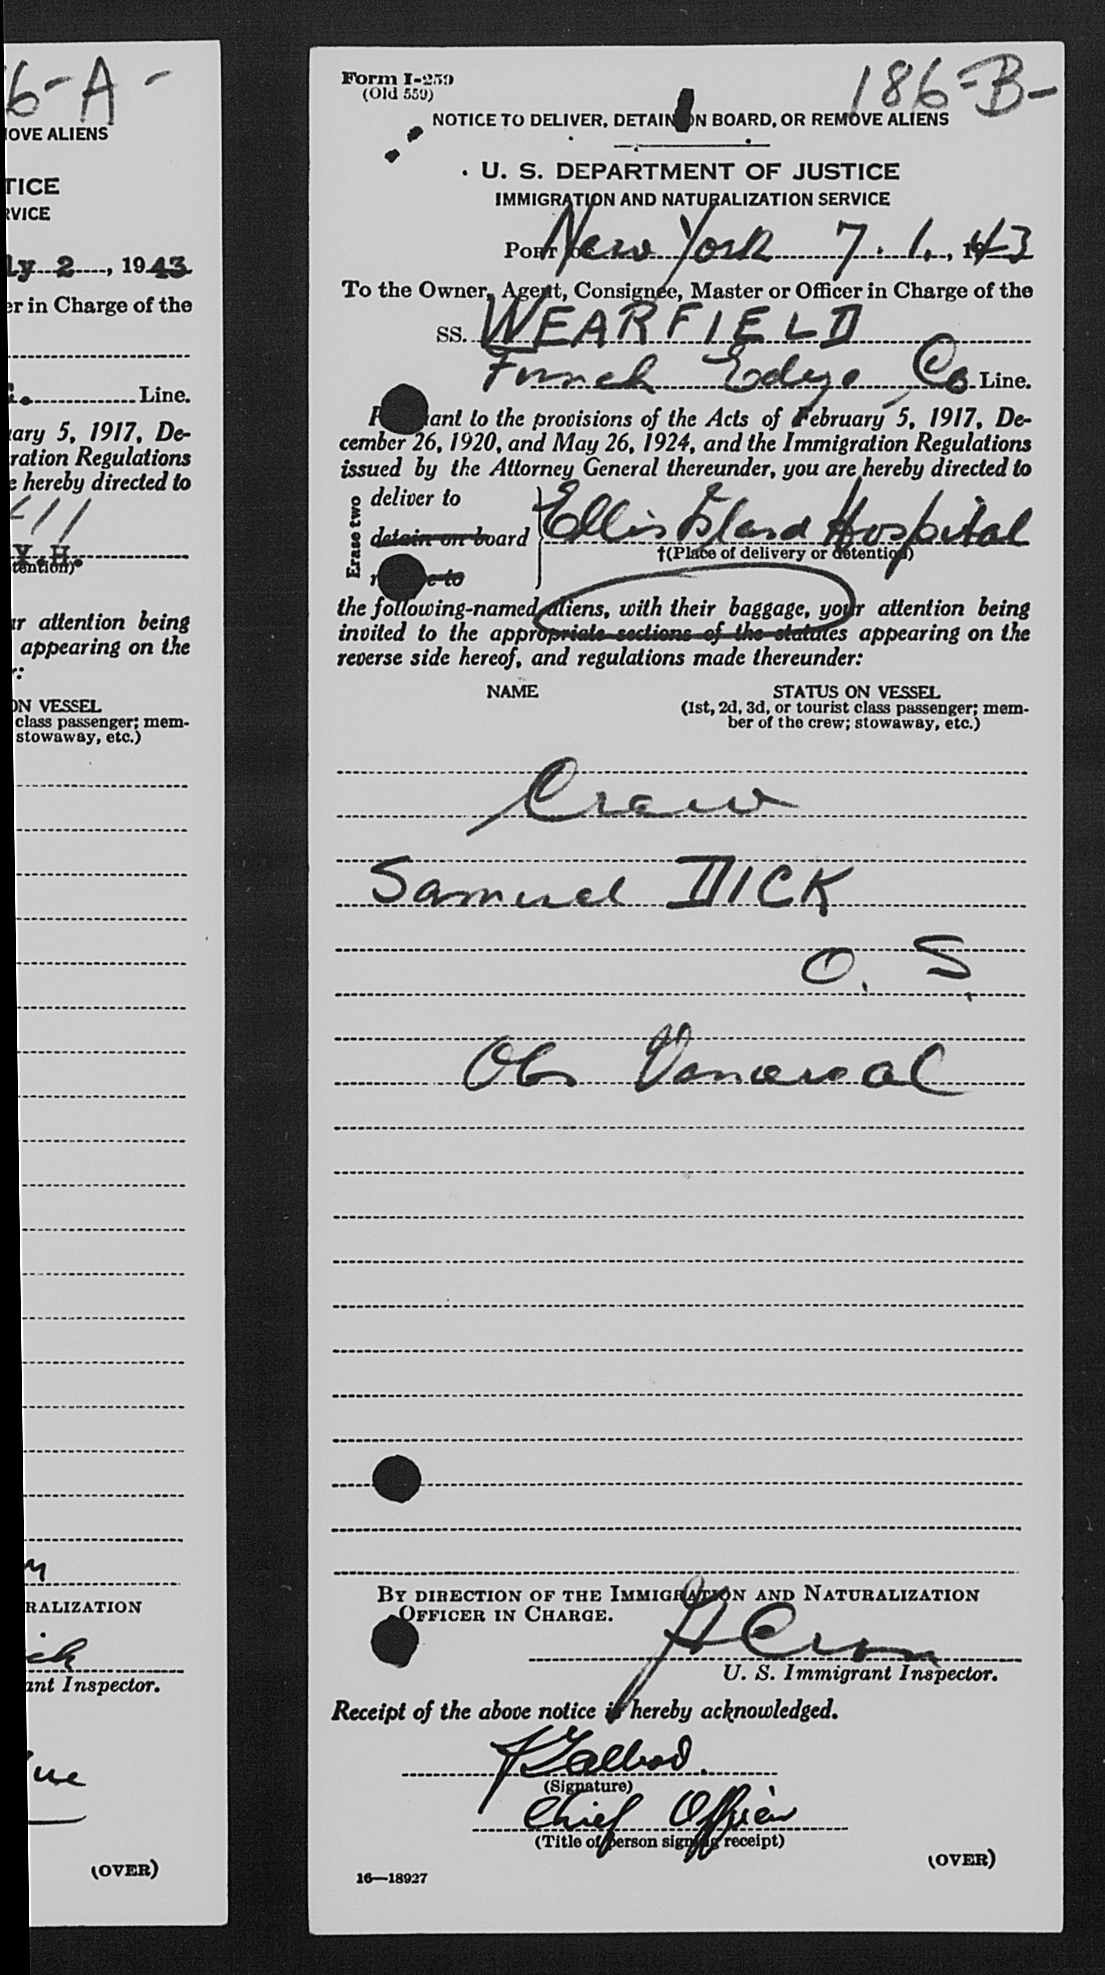 6-A-
OVE ALIENS
TICE
RVICE
ly 2, 1943
er in Charge of the
Line.
ary 5, 1917, De-
ration Regulations
e hereby directed to
Y. H.
tention)
r attention being
appearing on the
r:
ON VESSEL
class passenger; mem-
stowaway, etc.)
RALIZATION
ant Inspector.
(OVER)
186-B-
Form I-259
(Old 559)
NOTICE TO DELIVER, DETAIN ON BOARD, OR REMOVE ALIENS
U. S. DEPARTMENT OF JUSTICE
IMMIGRATION AND NATURALIZATION SERVICE
PORT OF New York 7. 1., 1943
To the Owner, Agent, Consignee, Master or Officer in Charge of the
SS. WEARFIELD
Funch Edye Co Line.
Pursuant to the provisions of the Acts of February 5, 1917, De-
cember 26, 1920, and May 26, 1924, and the Immigration Regulations
issued by the Attorney General thereunder, you are hereby directed to
Erase two
deliver to
detain on board Ellis Island Hospital
†(Place of delivery or detention)
remove to
the following-named aliens, with their baggage, your attention being
invited to the appropriate sections of the statutes appearing on the
reverse side hereof, and regulations made thereunder:
NAME STATUS ON VESSEL
(1st, 2d, 3d, or tourist class passenger; mem-
ber of the crew; stowaway, etc.)
Crew
Samuel DICK
O. S.
Obs Venereal
BY DIRECTION OF THE IMMIGRATION AND NATURALIZATION
OFFICER IN CHARGE.
U. S. Immigrant Inspector.
Receipt of the above notice is hereby acknowledged.
(Signature)
Chief Officer
(Title of person signing receipt)
(OVER)
16—18927